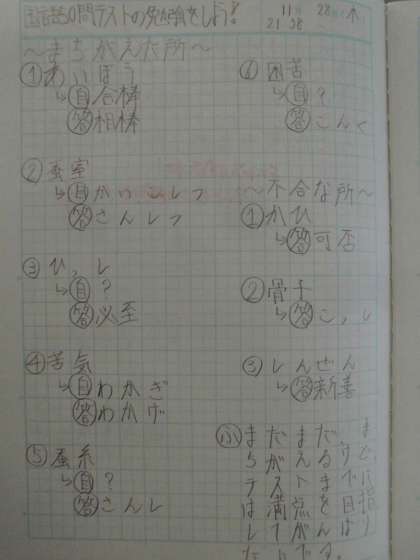 国語50問テストの勉強をしよう!
11月28日(木)
21:38
〜まちがえた所〜
①あいぼう
↳自合棒
答相棒
②蚕室
↳自かいこしつ
答さんしつ
③ひっし
↳自?
答必至
④若気
↳自わかぎ
答わかげ
⑤蚕糸
↳自?
答さんし
⑥困苦
↳自?
答こんく
〜不合な所〜
①かひ
↳答可否
②骨子
↳答こっし
③しんぜん
↳答親善
ふまだまだま
ちがえるけど、
テストまでに
は満点を目指
してがんばり
たいです